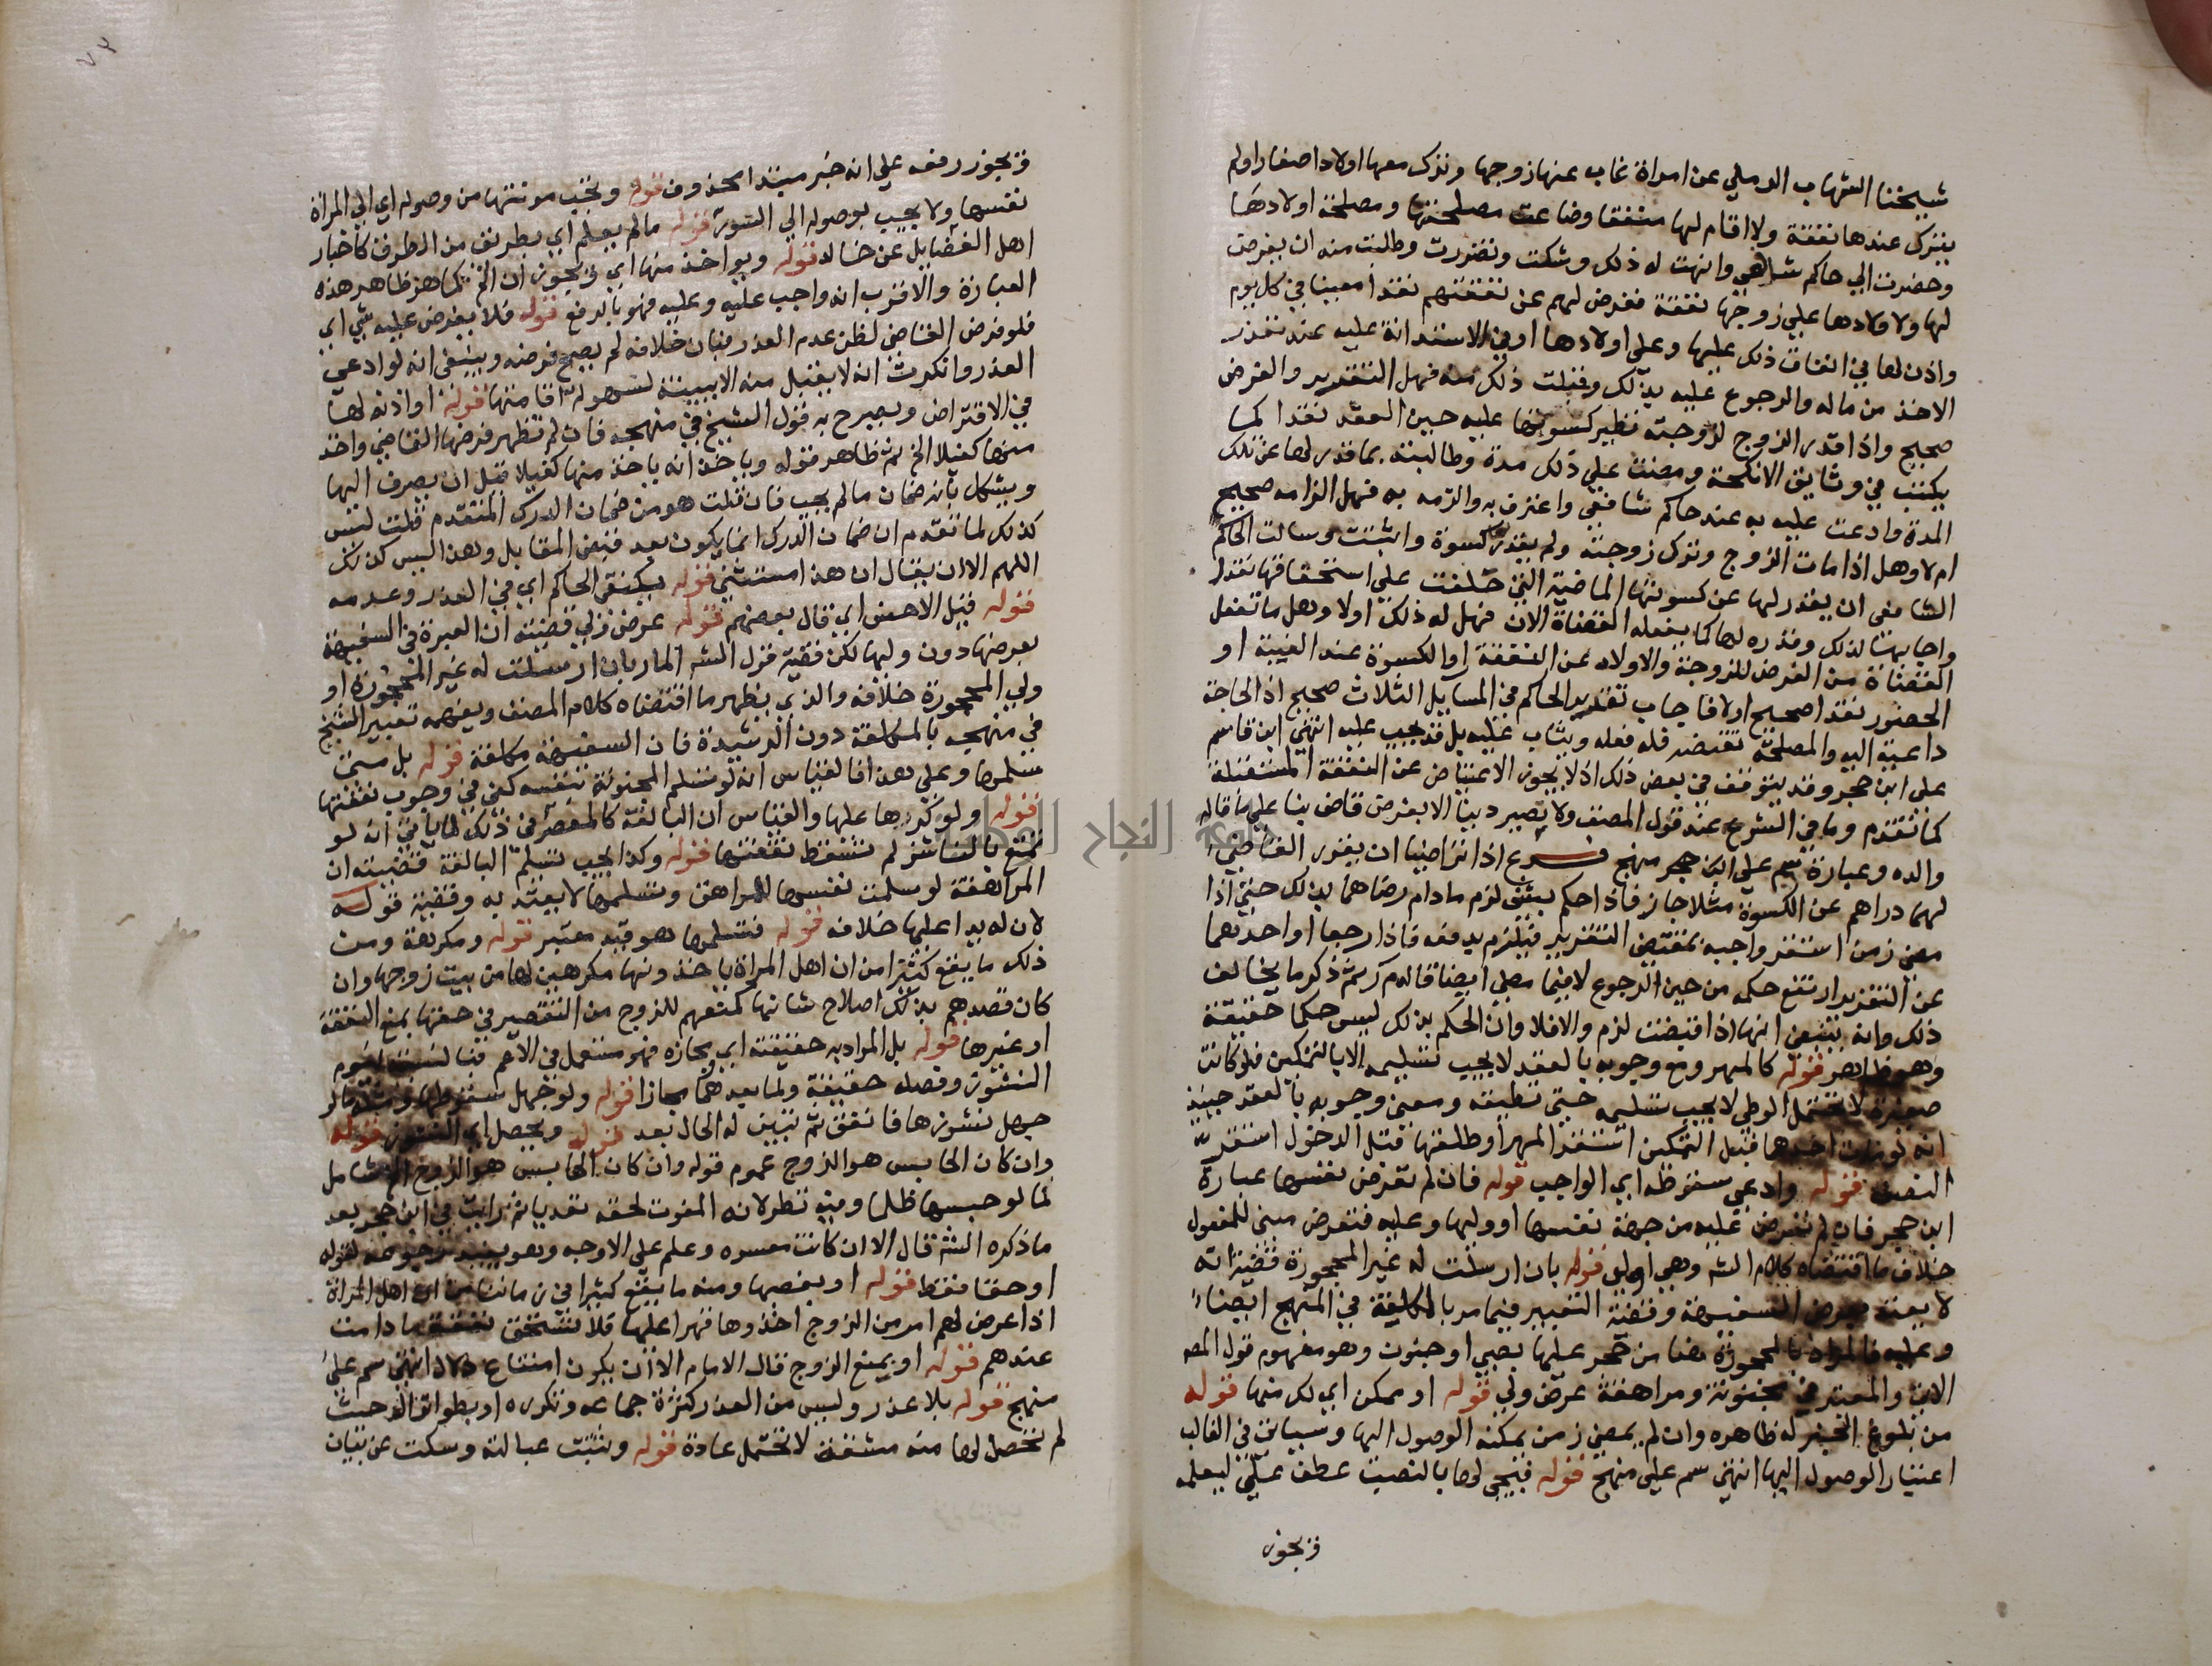 شيخنا الشهاب الرملي عن امراة غاب عنها زوجها وترك معها اولادا صغارا ولم
يترك عندها نفقة ولا اقام لها منفقا وضاعت مصلحتها ومصلحة اولادها
وحضرت الي حاكم شافعي وانهت له ذلك وشكت وتضررت وطلبت منه ان يفرض
لها ولاولادها علي زوجها نفقة ففرض لهم عن نفقتهم نقدا معينا في كل يوم
واذن لها في انفاق ذلك عليها وعلي اولادها او في الاستدانة عليه عند تعذر
الاخذ من ماله والرجوع عليه بذلك وقبلت ذلك منه فهل التقدير والفرض
صحيح واذا قدر الزوج لزوجته نظير كسوتها عليه حين العقد نقدا كما
يكتب في وثايق الانكحة ومضت علي ذلك مدة وطالبته بما قدر لها عن تلك
المدة وادعت عليه به عند حاكم شافعي واعترف به والزمه به فهل الزامه صحيح
ام لا وهل اذا مات الزوج وترك زوجته ولم يقدر كسوة واثبتت وسالت الحاكم
الشافعي ان يقدر لها عن كسوتها الماضية التي حلفت علي استحقاقها نقدا
واجابها لذلك وقدره لها كما يفعله القضاة الان فهل له ذلك اولا وهل ما تفعل
القضاة من الفرض للزوجة والاولاد عن النفقة او الكسوة عند الغيبة او
الحضور نقدا صحيح اولا فاجاب تقدير الحاكم في المسايل الثلاث صحيح اذ الحاجة
داعية اليه والمصلحة تقتضيه فله فعله ويثاب عليه بل قد يجب عليه انتهي ابن قاسم
علي ابن حجر وقد يتوقف في بعض ذلك اذ لا يجوز الاعتياض عن النفقة المستقبلة
كما تقدم وما في الشرع عند قول المصنف ولا يصير دينا الا بفرض قاض بنا علي ما قاله
والده وعبارة سم علي ابن حجر منهج فرع اذا تراضيا ان يقرر القاضي
لهما دراهم عن الكسوة مثلا جاز فاذا حكم بشي لزم ما دام رضاهما بذلك حتي اذا
مضي زمن استقر واجبه بمقتضي التقرير فيلزم بدفعه فاذا رجعا او احدهما
عن التقرير ارتفع حكمه من حين الرجوع لا فيما مضي ايضا قاله م ر ثم ذكر ما يخالف
ذلك وانه ينبغي انها اذا اقتضت لزم والا فلا وان الحكم بذلك ليس حكما حقيقة
وهو ظاهر قوله كالمهر ومع وجوبه بالعقد لا يجب تسليمه الا بالتمكين فلو كانت
صغيرة لا تحتمل الوطي لا يجب تسليمه حتي تطيقه ومعني وجوبه بالعقد حينئذ
انه لو مات احدهما قبل التمكين استقر المهر او طلقها قبل الدخول استقر
النصف قوله وادعي سقوطه اي الواجب قوله فان لم تعرض نفسها عبارة
ابن حجر فان لم تعرض عليه من جهة نفسها او وليها وعليه فتعرض مبني للمفعول
خلاف ما اقتضاه كلام الشه وهي اولي قوله بان ارسلت له غير المحجورة قضيته انه
لا يعتد بعرض السفيهة وقضية التعبير فيما مر بالمكلفة في المنهج ايضا
وعليه فالمراد بالمحجورة هنا من حجر عليها بصبي او جنون وهو مفهوم قول المص
الاتي والمعتبر في مجنونة ومراهقة عرض ولي قوله او ممكن اي لك منها قوله
من بلوغ الخبر له ظاهره وان لم يمض زمن يمكنه الوصول اليها وسياتي في الغائب
اعتبار الوصول اليها انتهي سم علي منهج قوله فيجي لها بالنصب عطف علي ليعلمه
ويجوز
ويجوز رفعه علي انه خبر مبتدا محذوف قوله وتجب مونتها من وصوله اي الي المراة
نفسها ولا يجب بوصوله الي السور قوله ما لم يعلم اي بطريق من الطرق كاخبار
اهل القضايل عن حاله قوله ويواخذ منها اي ظاهر هذه
العبارة والاقرب انه واجب عليه وعليه فهو بالرفع قوله فلا يفرض عليه شي اي
فلو فرض القاضي لظن عدم العذر فبان خلافه لم يصح فرضه وينبغي انه لو ادعي
العذر وانكرت انه لا يقبل منه الا ببينة لسهولة اقامتها قوله او اذنه لها
في الاقتراض ويصرح به قول الشيخ في منهجه فان لم تظهر فرضها القاضي واخذ
منها كفيلا الخ ثم ظاهر قوله وياخذ انه ياخذ منها كفيلا قبل ان يصرف اليها
ويشكل بانه ضمان ما لم يجب فان قلت هو من ضمان الدرك المتقدم قلت ليس
كذلك لما تقدم ان ضمان الدرك انما يكون بعد قبض المقابل وهذا ليس كذلك
اللهم الا ان يقال ان هذا مستثني قوله يكتفي الحاكم اي في العذر وعدمه
قوله قبل الاحسن اي قال بعضهم قوله عرض ولي قضيته ان العبرة في السفيهة
بعرضها دون وليها لكن قضية قول الشه المار بان ارسلت له غير المحجورة او
ولي المحجورة خلافه والذي يظهر ما اقتضاه كلام المصنف ويفهمه تعبير الشيخ
في منهجه بالمكلفة دون الرشيدة فان السفيهة مكلفة قوله بل متي
سلمها وعلي هذا فالقياس انه لو تسلم المجنونة بنفسه كفي في وجوب نفقتها
قوله ولو كرها عليها والقياس ان البالغة كالمعصر في ذلك لما ياتي انه لو
تمتع بالناشز لم تسقط نفقتها قوله وكذا يجب تسليم البالغة قضيته ان
المراهقة لو سلمت نفسها للمراهق وتسلمها لا يعتد به وقضية قوله
لان له يدا عليها خلافه قوله فتسلمها هو قيد معتبر قوله ومكرهة ومن
ذلك ما يقع كثيرا من ان اهل المراة ياخذونها مكرهين لها من بيت زوجها وان
كان قصدهم بذلك اصلاح شانها كمنعهم للزوج من التقصير في حقها بمنع النفقة
او غيرها قوله بل المراد به حقيقته اي مجازه فهو مستعمل في الاعم
النشوز وفصله حقيقة ولما بعدهما مجازا قوله ولو جهل سقوطها
جهل نشوزها فانفق ثم تبين له الحال بعد قوله ويحصل اي النشوز قوله
وان كان الحابس هو الزوج عموم قوله وان كان الحابس هو الزوج شامل
لما لو حبسها ظلما وفيه نظر لانه المفوت لحقه تعديا ثم رايت في ابن حجر بعد
ما ذكره الشه قال الا ان كانت معسره وعلم علي الاوجه وهو لقوله
او حقا فقط قوله او بغصبها ومنه ما يقع كثيرا في زماننا من ان اهل المراة
اذا عرض لهم امر من الزوج اخذوها قهرا عليها فلا تستحق نفقة ما دامت
عندهم قوله او يمنع الزوج قال الامام الا ان يكون امتناع دلال انتهي سم علي
منهج قوله بلا عذر وليس من العذر كثرة جماعه وتكرره او بطو انزاله حيث
لم يحصل لها منه مشقة لا تحتمل عادة قوله وتثبت عبالة وسكت عن بيان